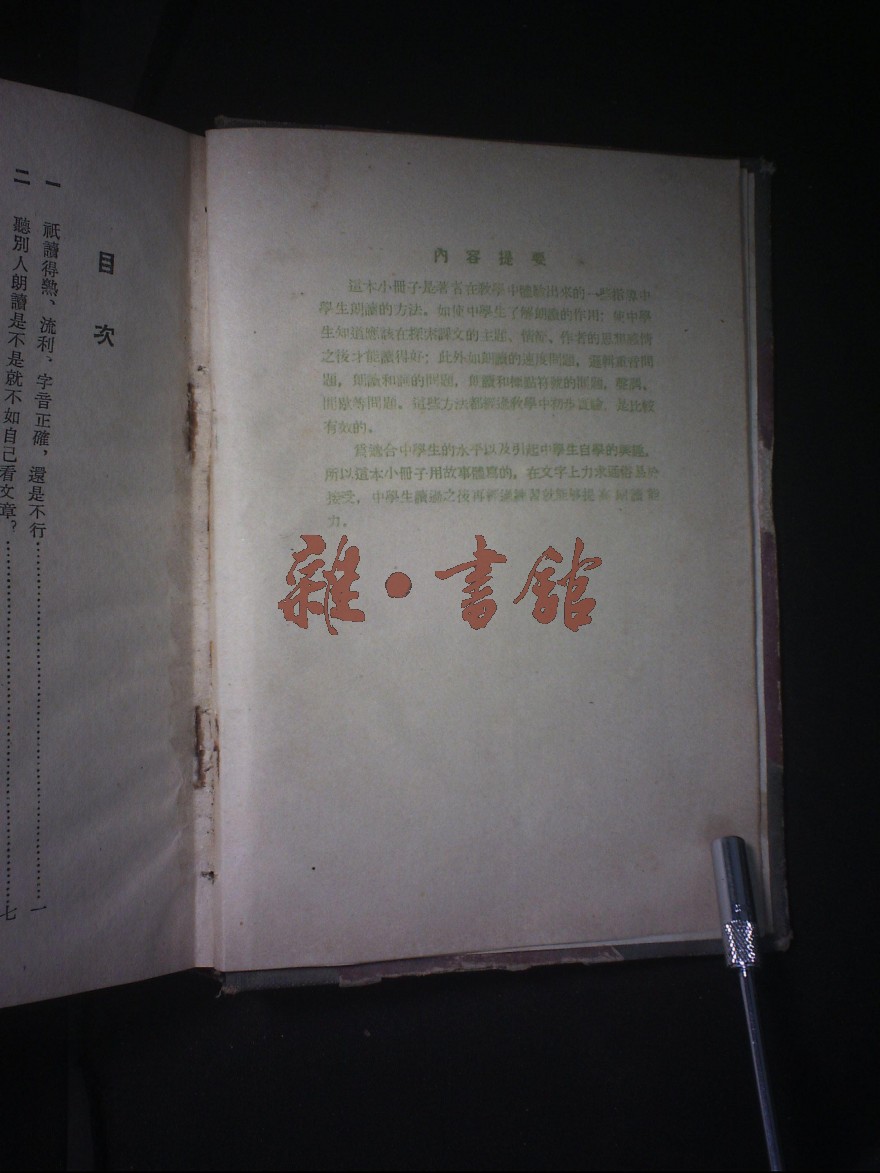 目次
一 祇讀得熟、流利、字音正確，還是不行……一
二 聽別人朗讀是不是就不如自己看文章？……七
內容提要
這本小冊子是著者在教學中體驗出來的一些指導中
學生朗讀的方法。如使中學生了解朗讀的作用；使中學
生知道應該在探索課文的主題、情節、作者的思想感情
之後才能讀得好；此外如朗讀的速度問題，邏輯重音問
題，朗讀和詞的問題，朗讀和標點符號的問題，聲調、
間歇等問題。這些方法都經過教學中初步試驗，是比較
有效的。
爲適合中學生的水平以及引起中學生自學的興趣，
所以這本小冊子用故事體寫的。在文字上力求通俗易於
接受，中學生讀過之後再經過練習就能够提高朗讀能
力。
雜·書館